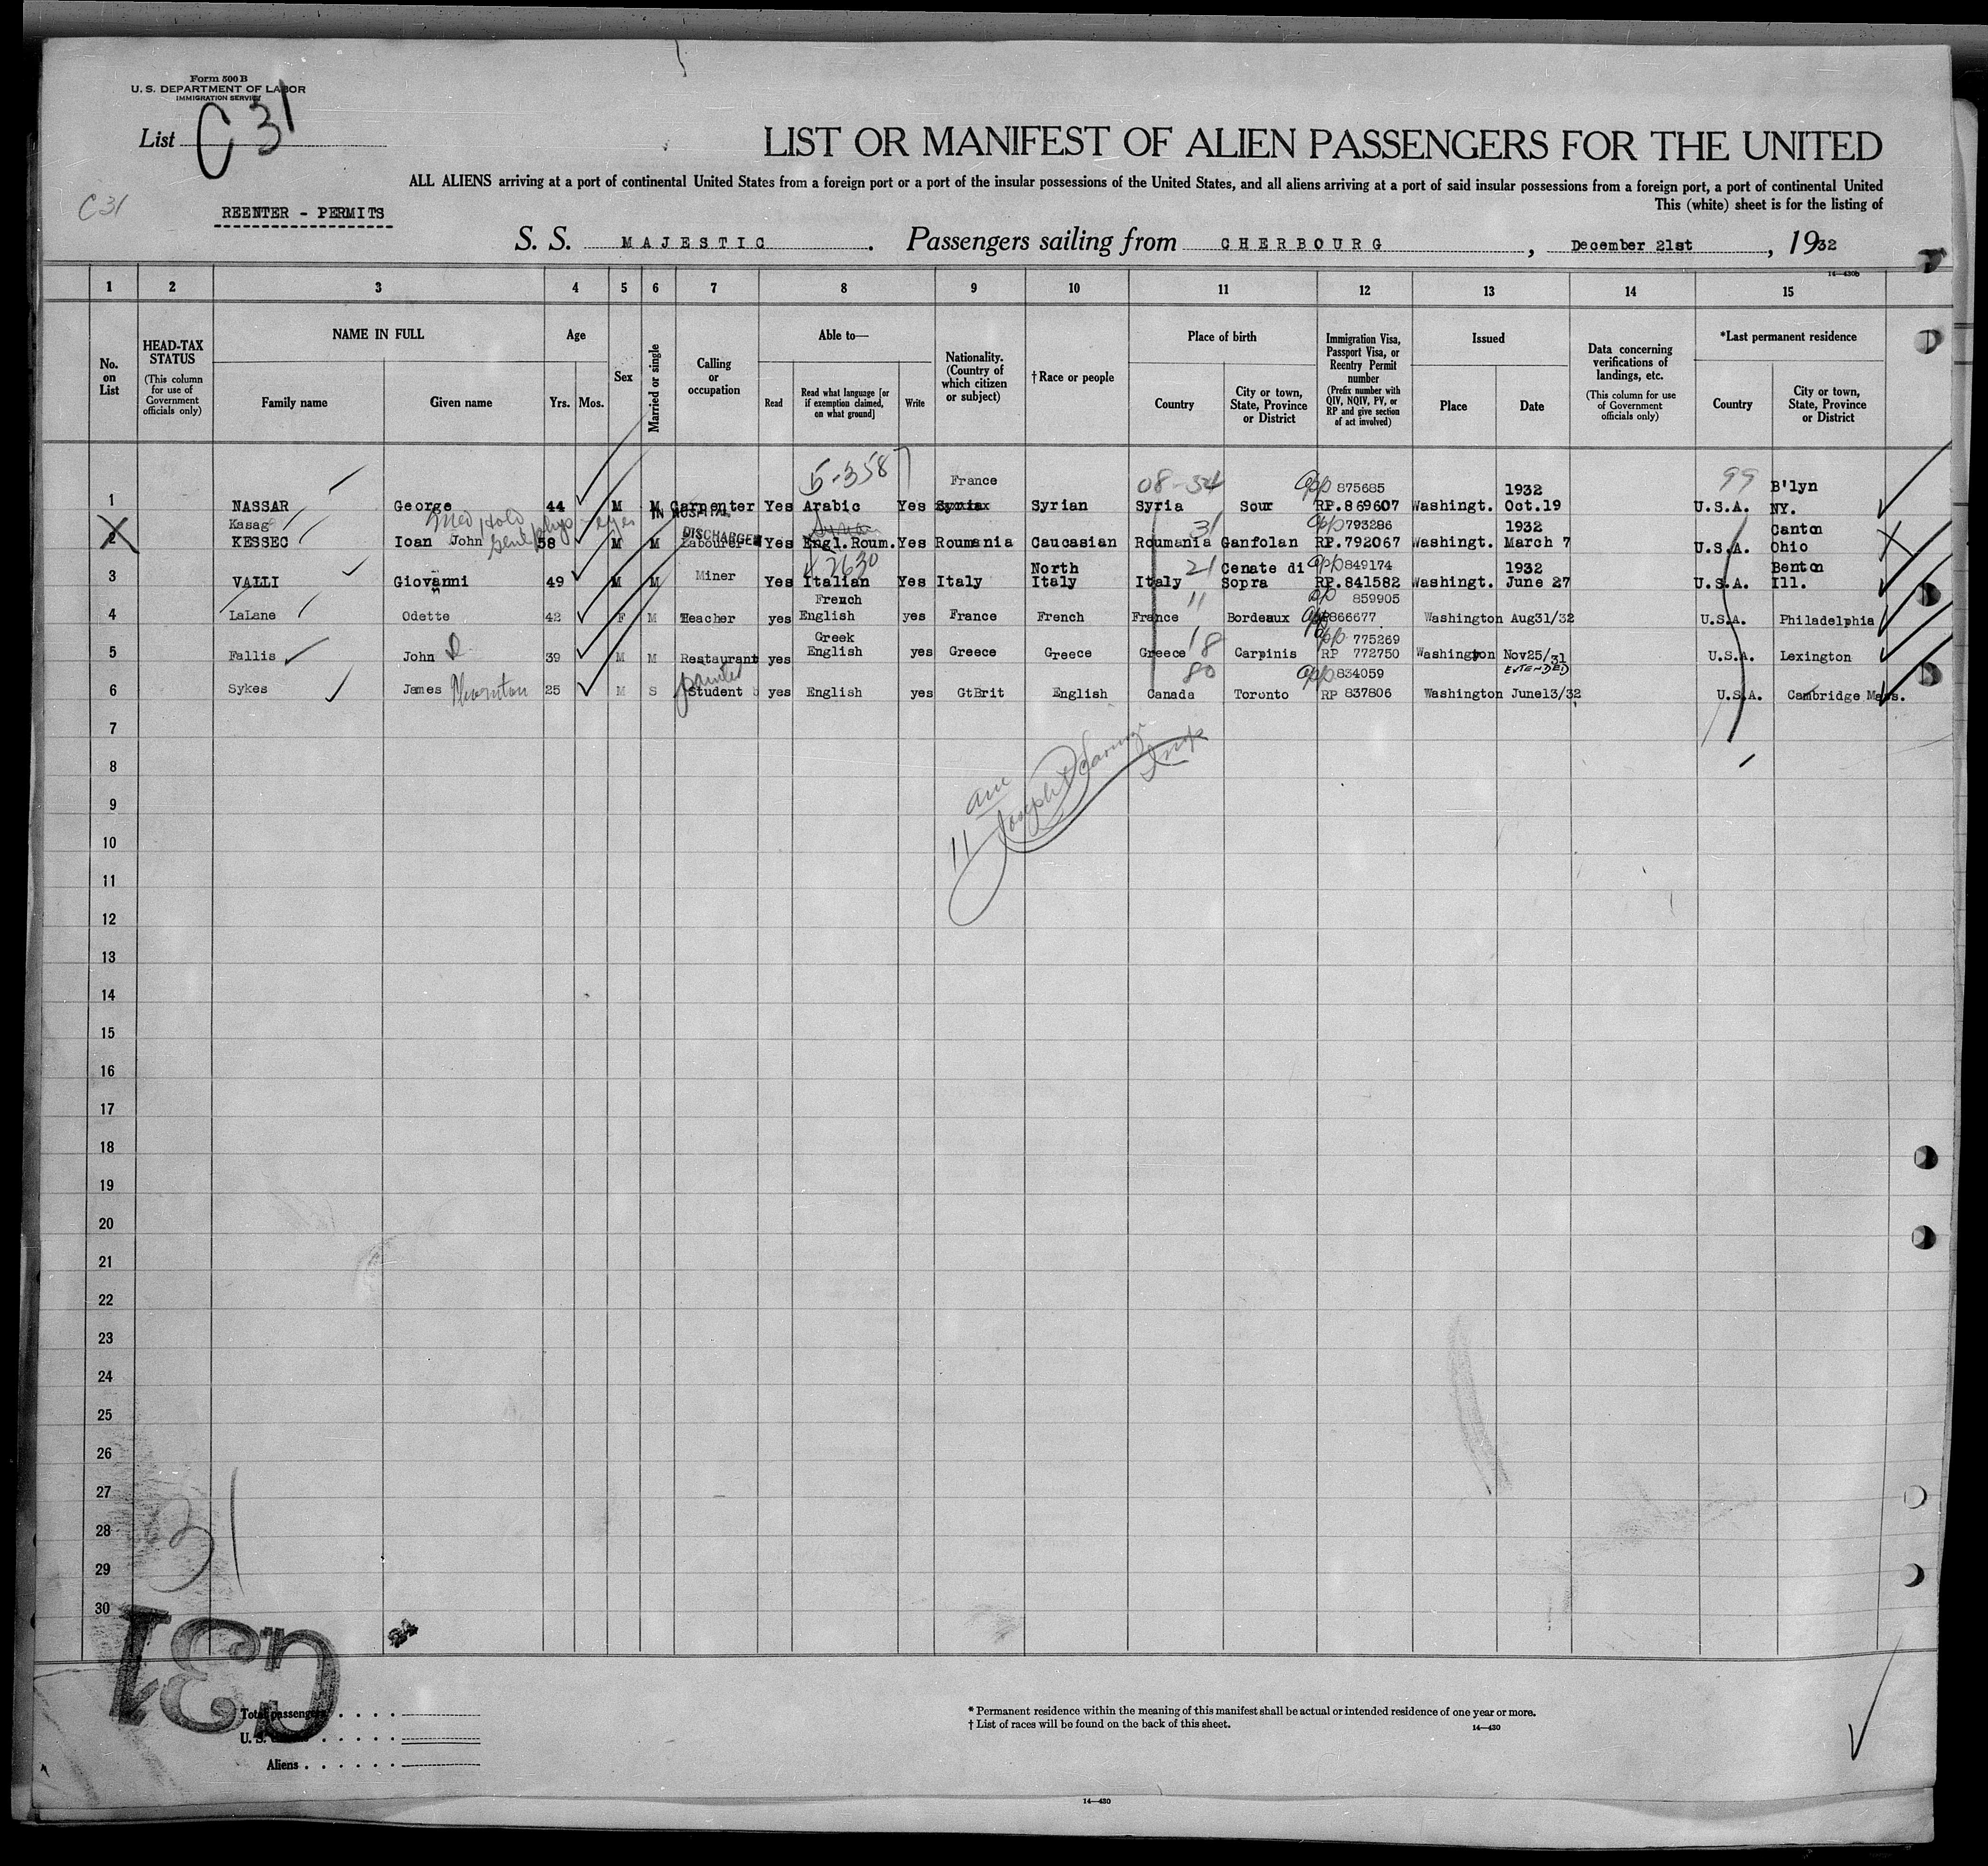 Form 500 B
U. S. DEPARTMENT OF LABOR
IMMIGRATION SERVICE
List C 31
LIST OR MANIFEST OF ALIEN PASSENGERS FOR THE UNITED
ALL ALIENS arriving at a port of continental United States from a foreign port or a port of the insular possessions of the United States, and all aliens arriving at a port of said insular possessions from a foreign port, a port of continental United
This (white) sheet is for the listing of
C 31
REENTER - PERMITS
S. S. MAJESTIC . Passengers sailing from CHERBOURG , December 21st , 1932
14—430b
1 2 3 4 5 6 7 8 9 10 11 12 13 14 15
No. on List
HEAD-TAX STATUS (This column for use of Government officials only)
NAME IN FULL
Family name
Given name
Age
Yrs. Mos.
Sex
Married or single
Calling or occupation
Able to—
Read
Read what language [or if exemption claimed, on what ground]
Write
Nationality. (Country of which citizen or subject)
†Race or people
Place of birth
Country
City or town, State, Province or District
Immigration Visa, Passport Visa, or Reentry Permit number (Prefix number with QIV, NQIV, PV, or RP and give section of act involved)
Issued
Place
Date
Data concerning verifications of landings, etc. (This column for use of Government officials only)
*Last permanent residence
Country
City or town, State, Province or District
5-358
France 08-34 app 875685 1932 99 B'lyn
1 NASSAR George 44 M M Carpenter Yes Arabic Yes Syrian Syria Sour RP.869607 Washingt. Oct.19 U.S.A. NY.
IN HOSPITAL
Kasag Med Hold DISCHARGED 31 app 793286 1932 Canton
2 KESSEC Ioan John 58 M M Labourer Yes Engl.Roum. Yes Roumania Caucasian Roumania Ganfolan RP.792067 Washingt. March 7 U.S.A. Ohio
Miner North 21 Cenate di app 849174 1932 Benton
3 VALLI Giovanni 49 M M Yes Italian Yes Italy Italy Italy Sopra RP.841582 Washingt. June 27 U.S.A. Ill.
French 11 859905
4 LaLane Odette 42 F M Teacher yes English yes France French France Bordeaux 866677 Washington Aug31/32 U.S.A. Philadelphia
Greek 18 app 775269
5 Fallis John 39 M M Restaurant yes English yes Greece Greece Greece Carpinis RP 772750 Washington Nov25/31 U.S.A. Lexington
EXTENDED
80 app 834059
6 Sykes James Thornton 25 M S Student yes English yes GtBrit English Canada Toronto RP 837806 Washington June13/32 U.S.A. Cambridge Mass.
7
8
9
10
11
12
13
14
15
16
17
18
19
20
21
22
23
24
25
26
27
28
29
30
C31
Total passengers
U. S.
Aliens
* Permanent residence within the meaning of this manifest shall be actual or intended residence of one year or more.
† List of races will be found on the back of this sheet.
14—430
14—430